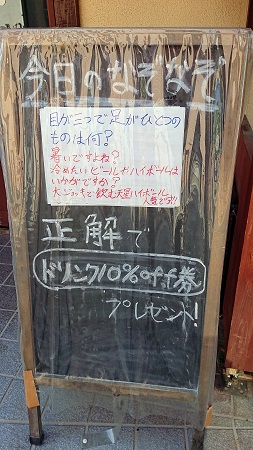 今日のなぞなぞ
目が三つで足がひとつの
ものは何?
暑いですよね?
冷めたいビールやハイボールは
いかがですか?
大ジョッキで飲む天星ハイボール
人気です!!
正解で
ドリンク10%off券
プレゼント!